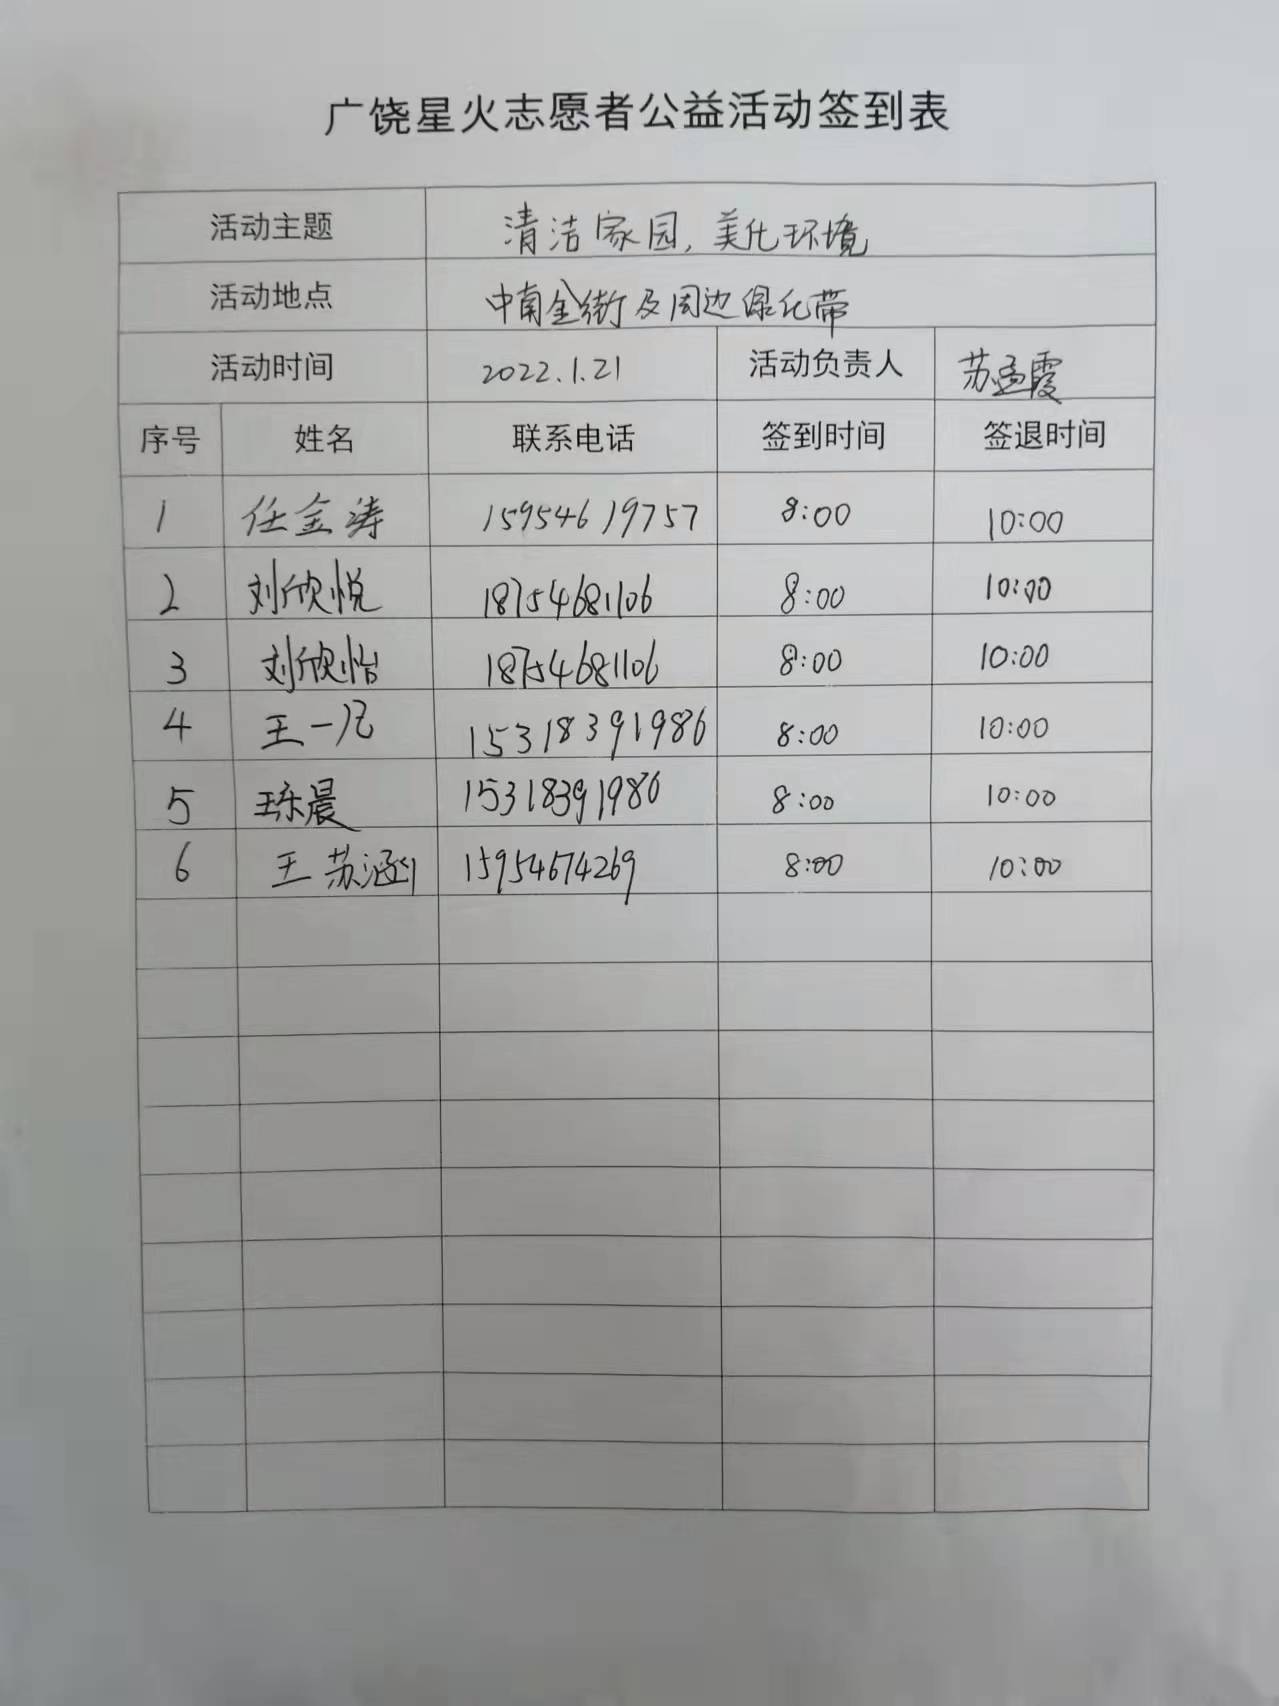 广饶星火志愿者公益活动签到表
活动主题 清洁家园，美化环境
活动地点 中南金街及周边绿化带
活动时间 2022.1.21 活动负责人 苏孟霞
序号 姓名 联系电话 签到时间 签退时间
1 任金涛 15954619757 8:00 10:00
2 刘欣悦 18754681106 8:00 10:00
3 刘欣怡 18754681106 8:00 10:00
4 王一凡 15318391986 8:00 10:00
5 晨 15318391986 8:00 10:00
6 王苏涵 15954674269 8:00 10:00